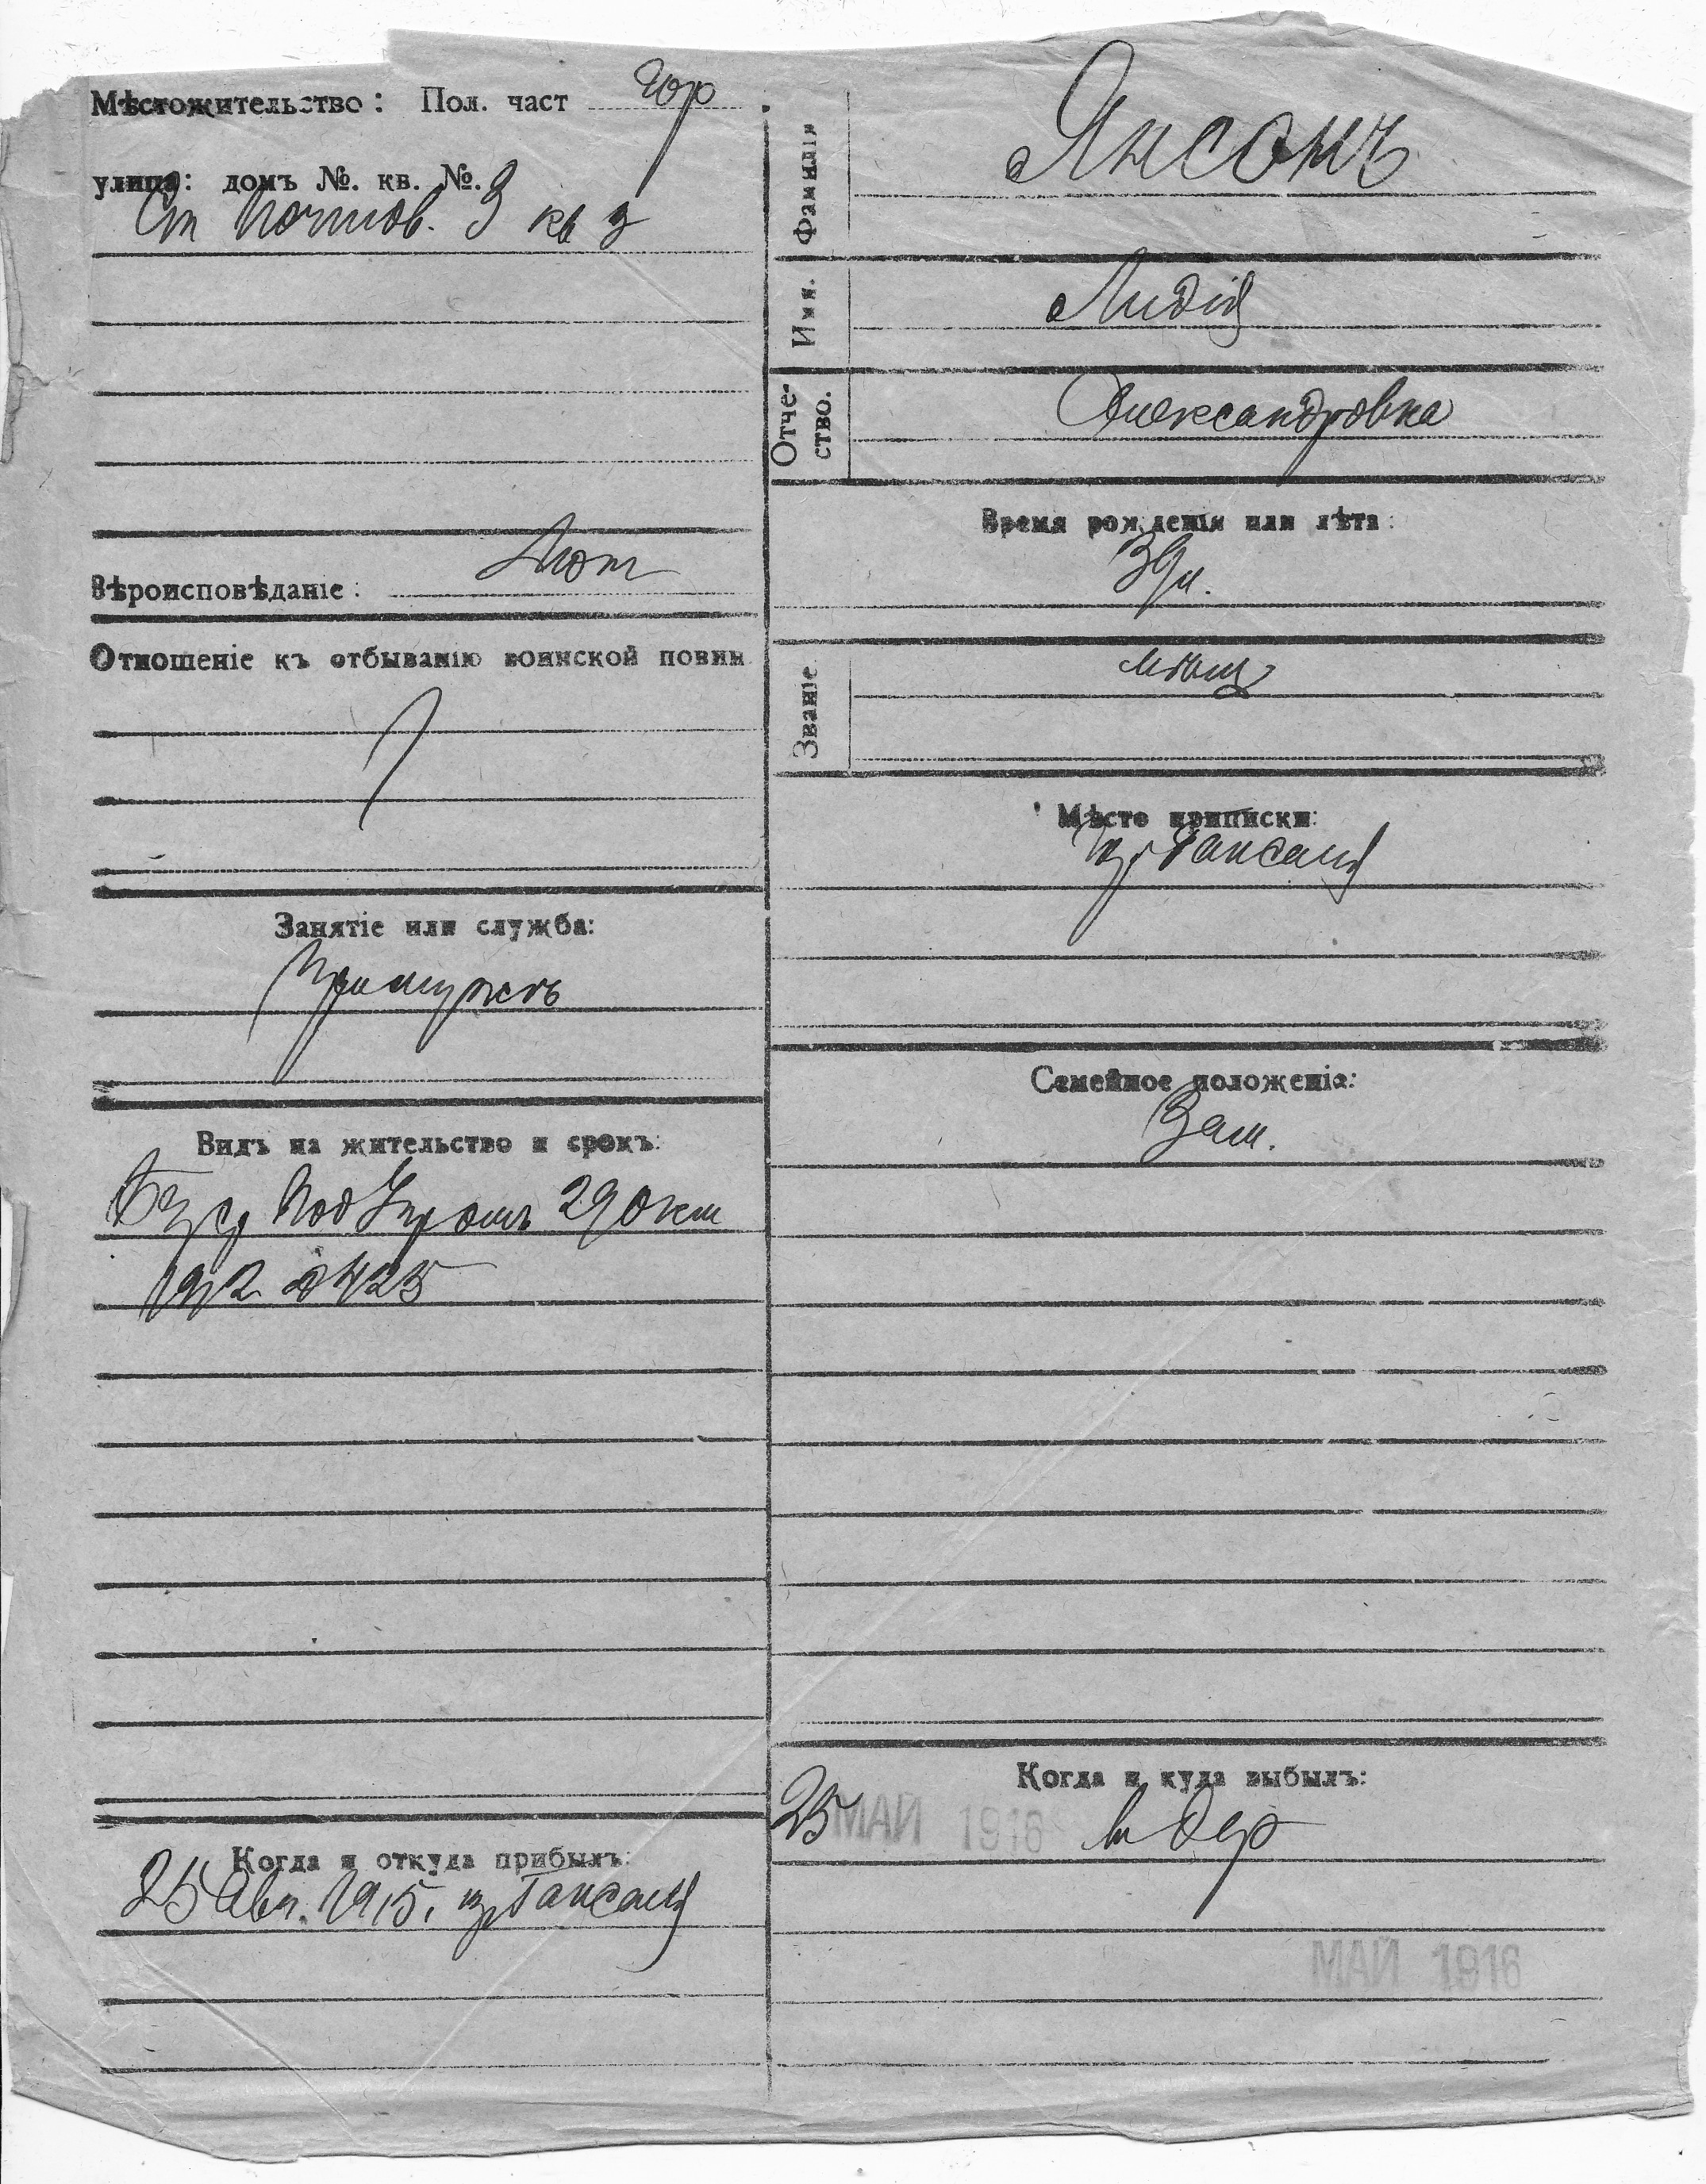 Мѣстожительство: Пол. част Юр
улица: домъ №. кв. №.
Ст Почтов. 3 кв 3
Вѣроисповѣданіе: Лют
Отношеніе къ отбыванію воинской повин
Занятіе или служба:
При мужѣ
Видъ на жительство и срокъ:
Безср 29 окт
1912 2425
Когда и откуда прибылъ:
25 Авг. 1915. из Гапсаля
Фамилія Янсонъ
Имя. Лидія
Отче-
ство. Александровна
Время рожденія или лѣта:
39 л.
Званіе мѣщ
Мѣсто приписки:
Гапсаля
Семейное положеніе:
Зам.
Когда и куда выбылъ:
25 МАЙ 1916 в дер
МАЙ 1916